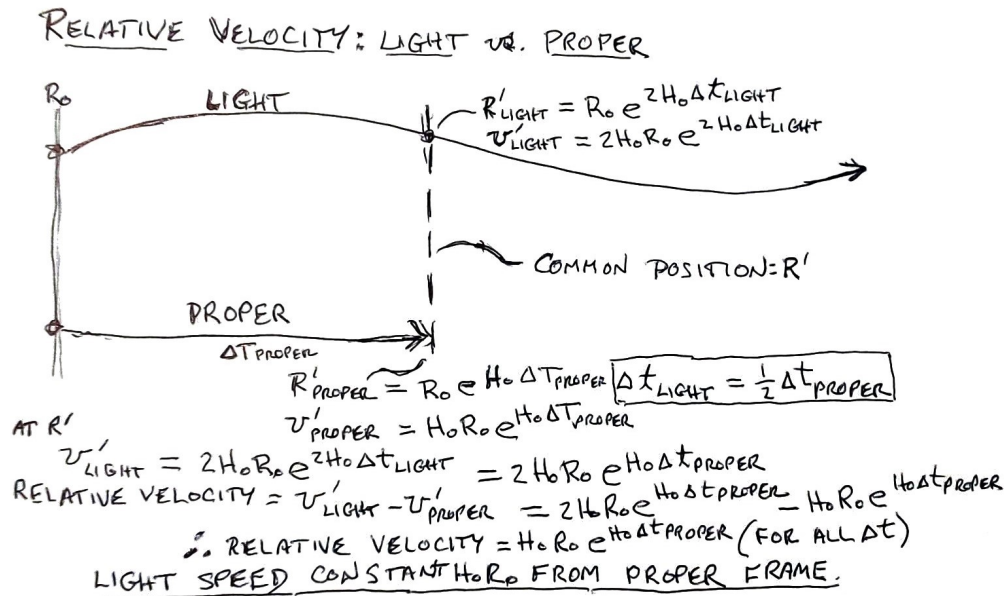 RELATIVE VELOCITY: LIGHT vs. PROPER
R₀
LIGHT
R'LIGHT = R₀ e^2H₀Δt LIGHT
v'LIGHT = 2H₀R₀ e^2H₀Δt LIGHT
COMMON POSITION = R'
PROPER
ΔT PROPER
R'PROPER = R₀ e^H₀ΔT PROPER
Δt LIGHT = ½ Δt PROPER
v'PROPER = H₀R₀ e^H₀ΔT PROPER
AT R'
v'LIGHT = 2H₀R₀ e^2H₀Δt LIGHT = 2H₀R₀ e^H₀Δt PROPER
RELATIVE VELOCITY = v'LIGHT - v'PROPER = 2H₀R₀ e^H₀Δt PROPER - H₀R₀ e^H₀Δt PROPER
∴ RELATIVE VELOCITY = H₀R₀ e^H₀Δt PROPER (FOR ALL Δt)
LIGHT SPEED CONSTANT H₀R₀ FROM PROPER FRAME.